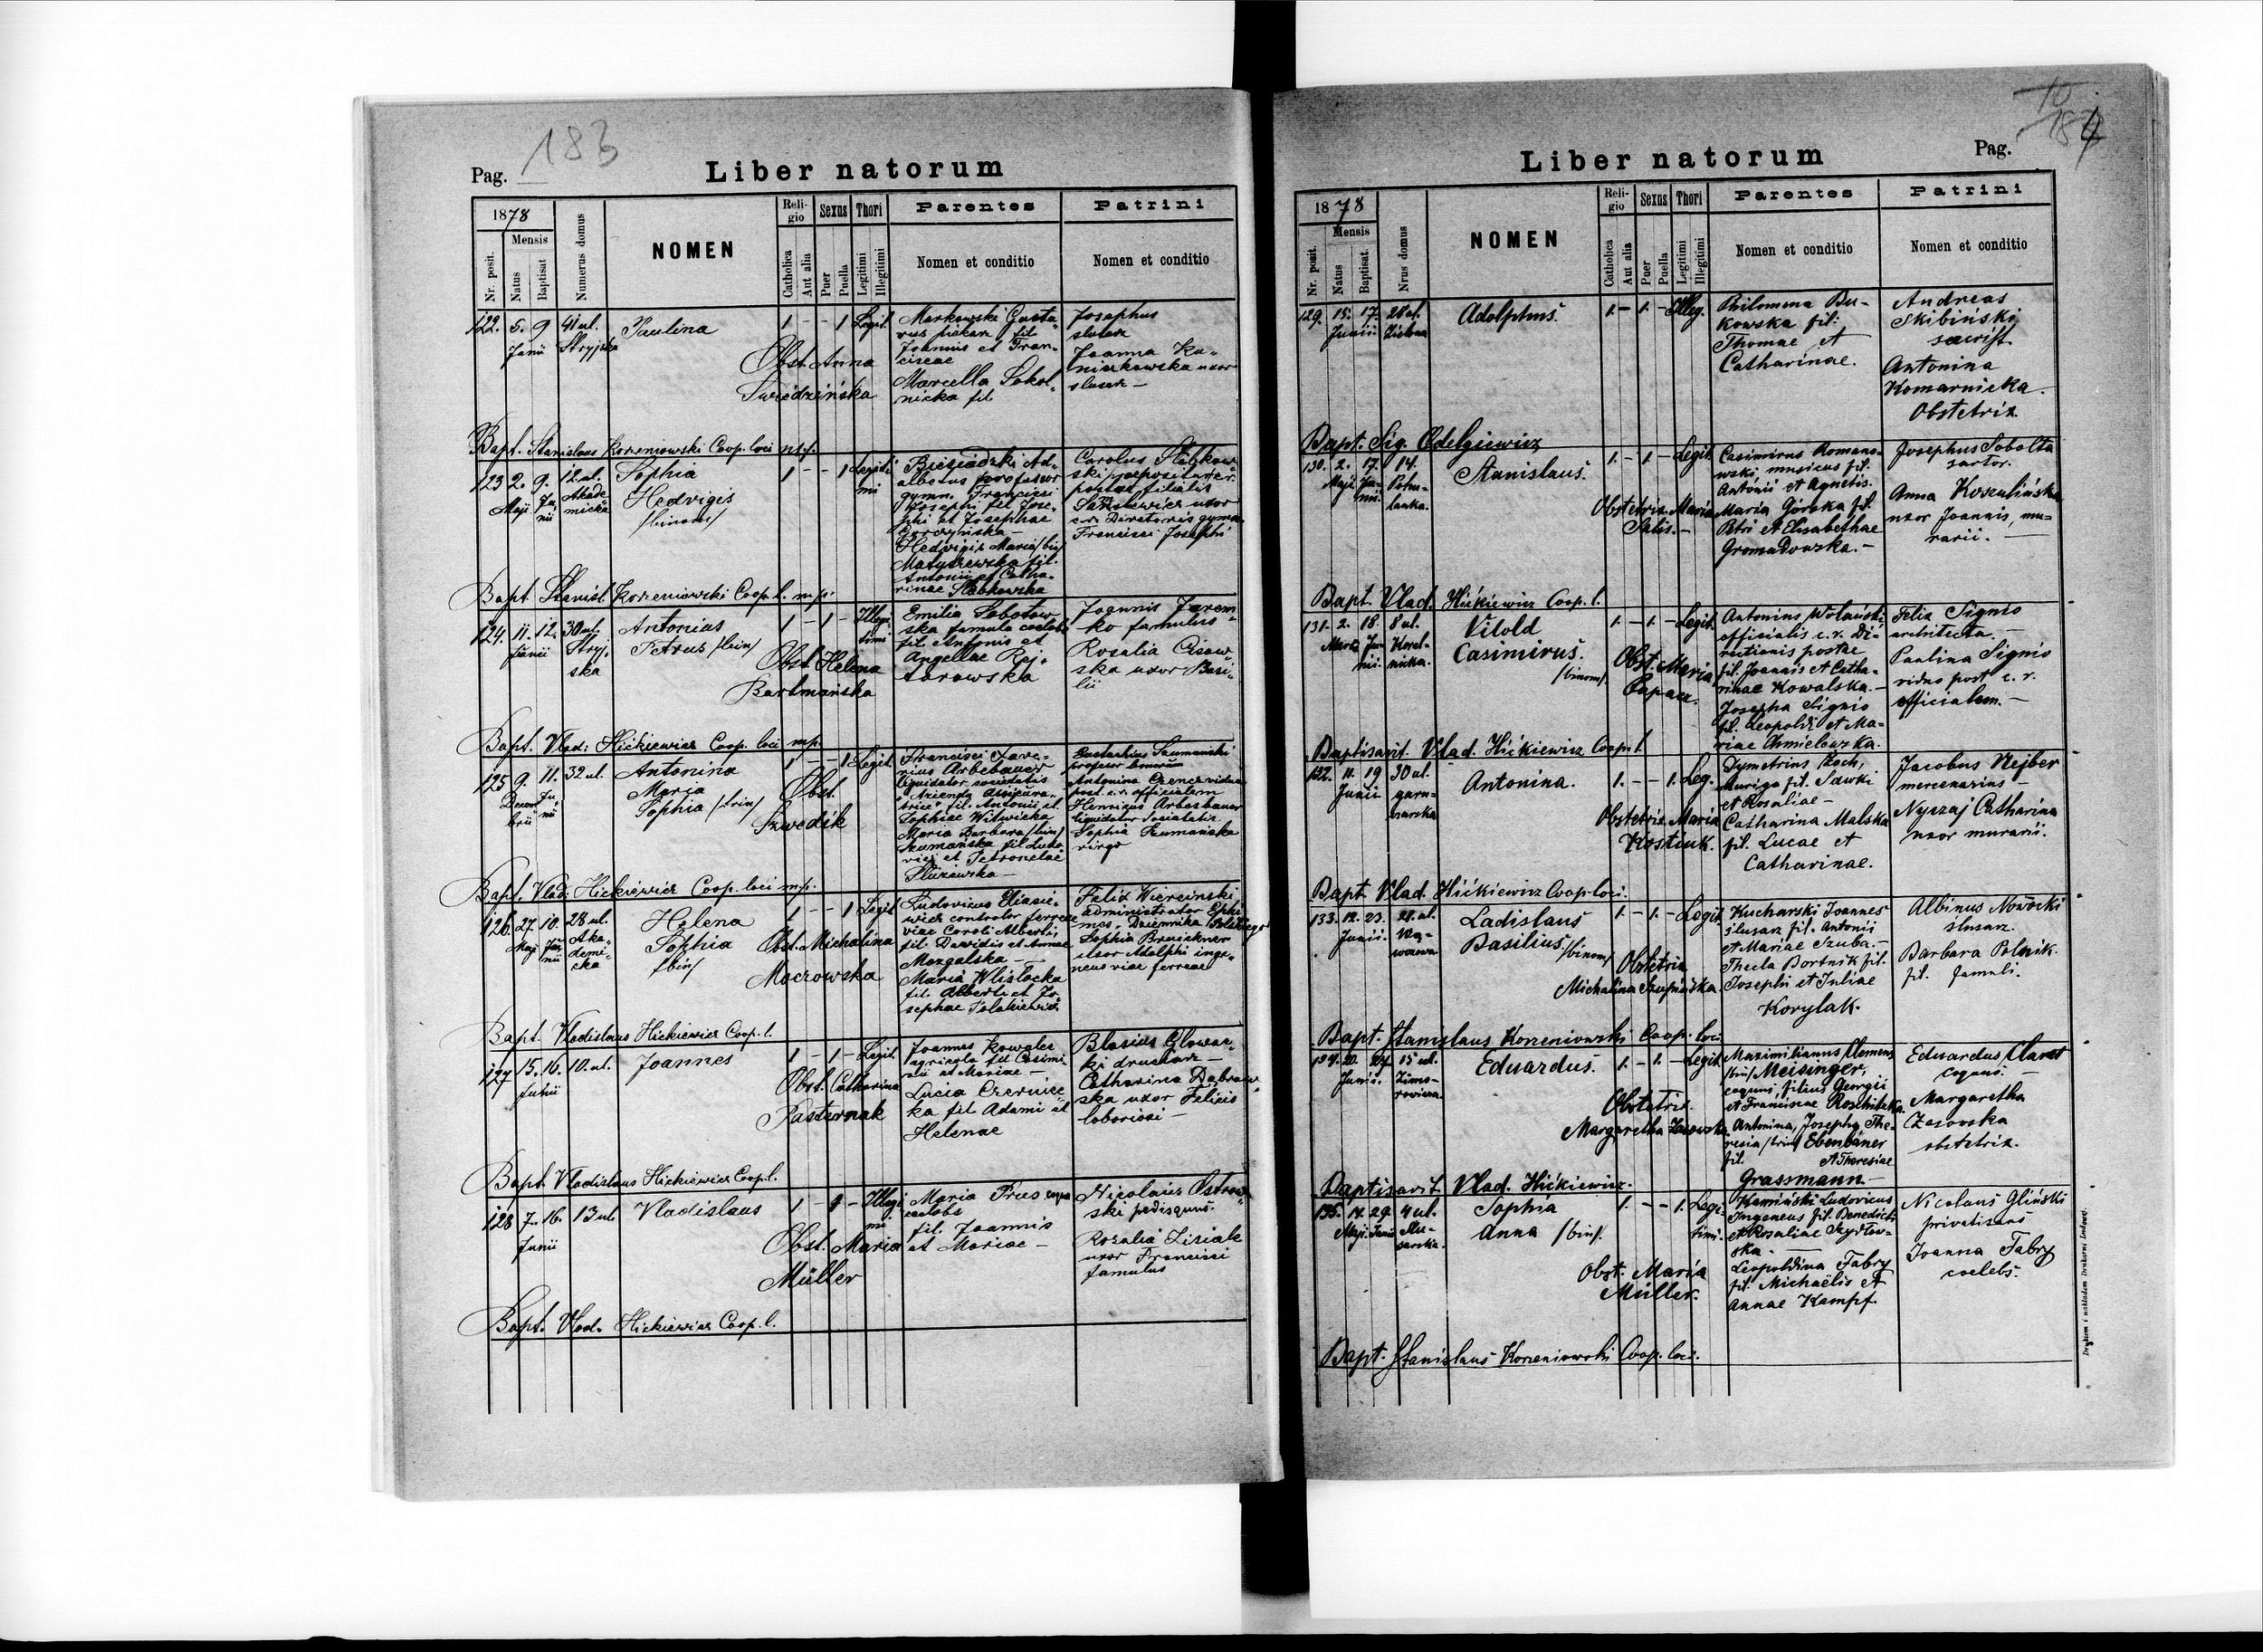 Pag. 183
Liber natorum
1878
Mensis
Nr. posit.
Natus
Baptisat
Numerus domus
NOMEN
Religio
Catholica
Aut alia
Sexus
Puer
Puella
Thori
Legitimi
Illegitimi
Parentes
Nomen et conditio
Patrini
Nomen et conditio
122. 5. 9 41 ul.
Junii Stryjska
Paulina
1 - - 1 Legit.
Obst. Anna
Świedzińska
Markowski Gusta-
vus fil
Joannis et Fran-
ciscae
Marcella Sokol-
nicka fil
Josephus
slusar
Joanna Ku-
uxor
slusar -
Bapt. Stanislaus Korzeniowski Coop. loci mp.
123 2. 9. 12 ul.
Maji Ju-
nii
Akade-
micka
Sophia
Hedvigis
/binom/
1 - - 1 Legiti-
mi
Biesiadzki Ad-
albetus professor
gymn. Francisci
Josephi fil Jose-
phi et Josephae
Hedvigis Maria /bin/
Matyszewska fil.
Antonii et Catha-
rinae Slebkowska
Carolus
ski
postae filialis
uxor
c.r. Directoris gymn.
Francisci Josephi
Bapt Stanisl. Korzeniowski Coop. l. mp.
124. 11. 12. 30 ul.
Junii Stryj-
ska
Antonius
Petrus /bin/
1 - 1 - Illegi-
timi
Obst. Helena
Bartmańska
Emilia Sobolow-
ska famula caelebs
fil Antonis et
Angellae Rej-
tarowska
Joannis Jarem-
ko famulus
Rosalia Cisow-
ska uxor Basi-
lii
Bapt. Vlad: Hickiewicz Coop. loci mp.
125 9. 11. 32 ul.
Decem-
bris
Ju-
nii
Antonina
Maria
Sophia /trin/
1 - - 1 Legit
Obst.
Szwedik
Francisci Xave-
rius Arbesbauer
liquidator societatis
"Azienda Assicura-
trice" fil. Antonii et
Sophiae Witwicka
Maria Barbara /bin/
Szumańska fil Ludo-
vici et Petronelae
Sluzewska -
Eustachius Szumański
profesor
Antonina Czencz vidua
post. c.r. officialem
Henricus Arbesbauer
liquidator Societatis
Sophia Szumańska
virgo
Bapt. Vlad: Hickiewicz Coop. loci mp.
126. 27. 10. 28 ul.
Maji Ju-
nii
Aka-
demi-
cka
Helena
Sophia
/bin/
1 - - 1 Legit
Obst. Michalina
Moczowska
Ludovicus Eliasie-
wicz controlor ferreae
viae Caroli Alberti,
fil. Dawidis et Annae
Mozgalska -
Maria Wlislocka
fil. Alberti et Jo-
sephae
Felix Wiercinski
administrator
Dziennika Polskiego
Sophia Bruickner
uxor Adolphi inge-
neus viae ferreae
Bapt Vladislaus Hickiewicz Coop. l.
127 15. 16. 10. ul.
Junii
Joannes
1 - 1 - Legit.
Obst. Catharina
Pasternak
Joannes Kowalec
agricola fil Casimi-
rii et Mariae -
Lucia Czerniec-
ka fil Adami et
Helenae
Blasius Glowac-
ki drucharz -
Catharina Dabrow-
ska uxor Felicis
laboriosi -
Bapt. Vladislaus Hickiewicz Coop. l.
128 7. 16. 13 ul.
Junii
Vladislaus
1 - 1 - Illegi-
mi
Obst. Maria
Müller
Maria Prus
caelebs
fil. Joannis
et Mariae -
Nicolaus Ostrow-
ski pedisequus.
Rozalia Lisiak
uxor Francisci
famulus
Bapt. Vlad. Hickiewicz Coop. l.
184
Liber natorum
Pag.
1878
Mensis
Nr. posit.
Natus
Baptisat.
Nrus domus
NOMEN
Religio
Catholica
Aut alia
Sexus
Puer
Puella
Thori
Legitimi
Illegitimi
Parentes
Nomen et conditio
Patrini
Nomen et conditio
129. 15. 17. 28 ul.
Junii Zielona
Adolphus.
1. - 1. - Illeg.
Philomena Bu-
kowska fil:
Thomae et
Catharinae.
Andreas
Skibiński
sacrist.
Antonina
Komarnicka.
Obstetrix
Bapt. Sig. Odelgiewicz
130. 2. 17. 14.
Maji. Ju-
nii.
Potu-
lanka.
Stanislaus.
1. - 1. - Legit.
Obstetrix Maria
Salis. -
Casimirus Romano-
wski musicus fil.
Antonii et Agnetis.
Maria Górska fil.
Petri et Elisabethae
Gromadowska. -
Josephus Sobolta
sartor.
Anna Koszulińska
uxor Joannis, mu-
rarii. -
Bapt. Vlad. Hićkiewicz Coop. l.
131. 2. 18. 8 ul.
Martii Ju-
nii.
Koral-
nicka.
Vitold
Casimirus.
/binom/
1. - 1. - Legit.
Obst. Maria
Capacz.
Antonius Wolański
officialis c. r. Di-
rectionis postae
fil. Joannis et Catha-
rinae Kowalska. -
Josepha Signio
fil. Leopoldi et Ma-
riae Chmielowska.
Felix Signio
architecta. -
Paulina Signio
vidua post c. r.
officialem. -
Baptisavit. Vlad. Hićkiewicz Coop. l.
132. 11. 19 30 ul.
Junii garn-
carska
Antonina.
1. - - 1. Leg.
Obstetrix Maria
Kostiuk.
Dymetrius Zoch,
auriga fil. Sawki
et Rosaliae -
Catharina Malska
fil. Lucae et
Catharinae.
Jacobus Nejber
mercenarius -
Nyczaj Catharina
uxor murarii.
Bapt. Vlad. Hićkiewicz Coop. loci.
133. 12. 23. 21. ul.
Junii.
Ladislaus
Basilius /binom/
1. - 1. - Legit.
Obstetrix
Michalina
Kucharski Joannes
slusarz fil. Antonii
et Mariae Szuba. -
Thecla Bortnik fil.
Josephi et Juliae
Korylak.
Albinus Nowocki
slusarz.
Barbara Polnik.
fil. famuli.
Bapt. Stanislaus Korzeniowski Coop. loci
134. 20. 27. 15 ul.
Junii. Zimo-
rowicza.
Eduardus.
1. - 1. - Legit.
Obstetrix.
Margaretha Zasowska
Maximilianus Clemens
/bin/ Meisinger,
coquus, filius Georgii
et Franciscae Roschitzka.
Antonina, Josepha The-
resia /trin/ Ebenbauer
fil. et Theresiae
Grassmann -
Eduardus Claret
coquus. -
Margaretha
Zasowska
obstetrix.
Baptisavit. Vlad. Hićkiewicz.
135. 14. 29 4 ul.
Maji. Junii Slu-
sarska.
Sophia
Anna /bin/.
1. - - 1. Legi-
timi.
Obst. Maria
Müller.
Kamiński Ludovicus
Ingeneus fil. Benedicti
et Rosaliae Szydłow-
ska. -
Leopoldina Fabry
fil. Michaëlis et
Annae Kampf.
Nicolaus Gliński
privatisans -
Joanna Fabry
coelebs.
Bapt. Stanislaus Korzeniowski Coop. loci.
Drukiem i nakładem Drukarni Ludowej.